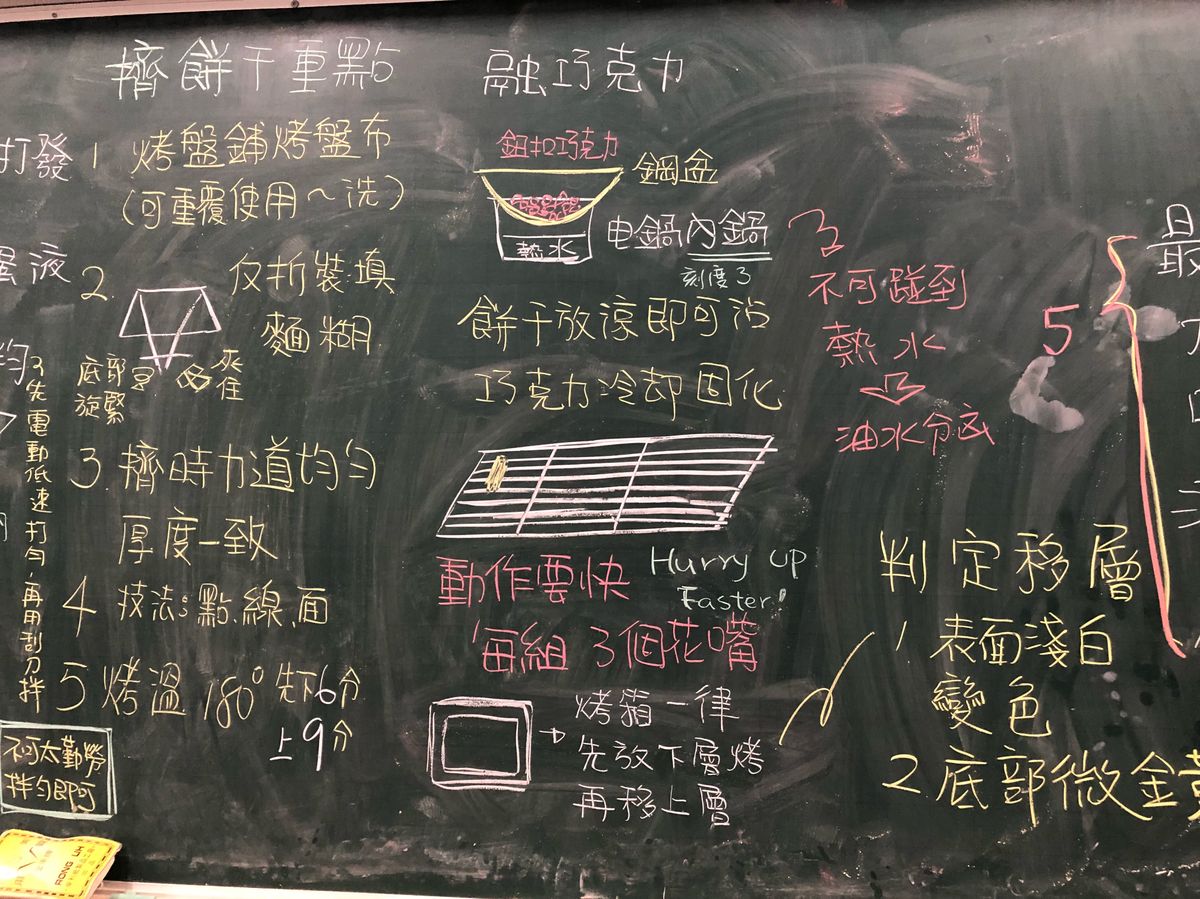 擠餅干重點
1 烤盤鋪烤盤布
(可重覆使用~洗)
2. 反折裝填
麵糊
底部
旋緊
夾
住
3. 擠時力道均勻
厚度一致
4 技法:點.線.面
5 烤溫 180° 先下6分
上9分
打發
蛋液
均
先電動低速打勻,再用刮刀拌
不可太勤勞
拌勻即可
融巧克力
鈕扣巧克力
鋼盆
熱水
电鍋內鍋
刻度3
餅干放涼即可沾
巧克力冷却固化
動作要快
Hurry up
Faster!
每組 3個花嘴
烤箱一律
先放下層烤
再移上層
不可碰到
熱水
油水分底
5
最
判定移層
1. 表面淺白
變色
2. 底部微金黃
RONG